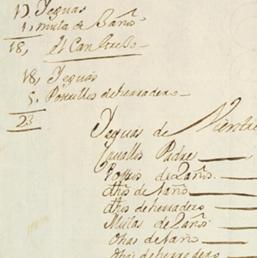 17 Yeguas
1, mula de 2 años
18,
18, Yeguas
5, Potrillos de herradero
23
Yeguas de Vientre
Cavallos Padres
Potros de 2 años
dhos de 1 año
dhos de herradero
Mulas de 2 años
Ohas de 1 año
Ohas de herradero